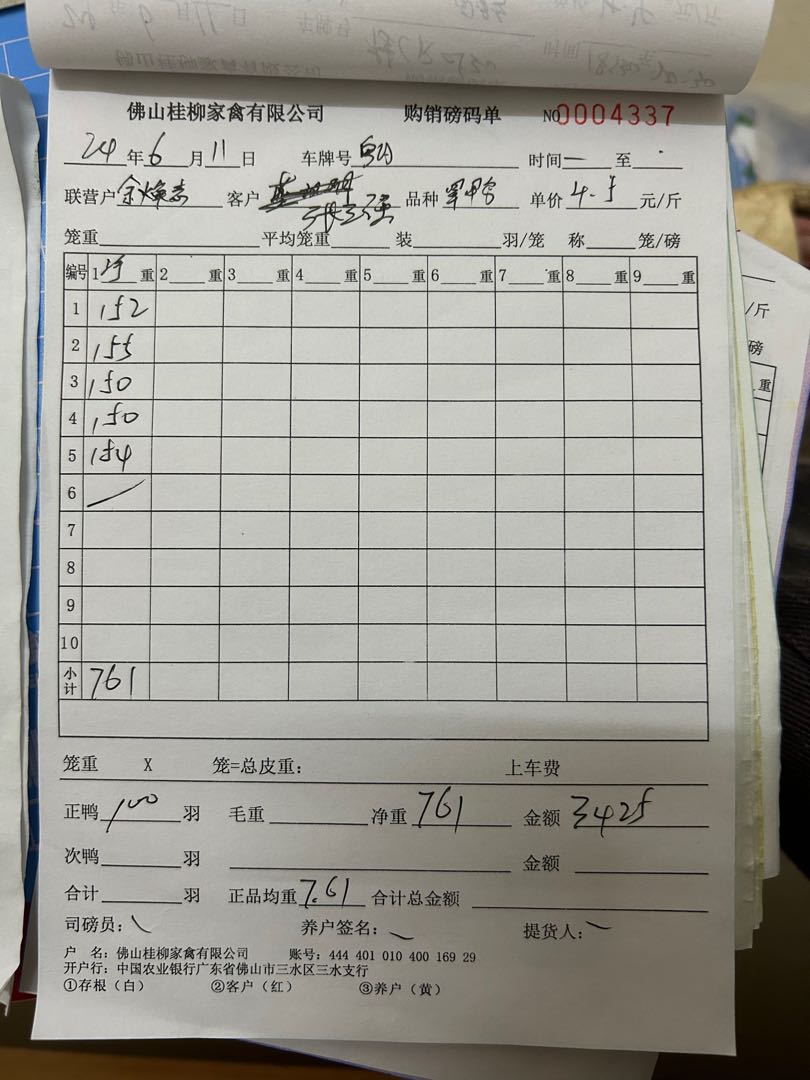 佛山桂柳家禽有限公司 购销磅码单 NO0004337
24年6月11日 车牌号 时间一至
联营户余焕志 客户 品种 单价4.5元/斤
笼重 平均笼重 装 羽/笼 称 笼/磅
编号 1 重 2 重 3 重 4 重 5 重 6 重 7 重 8 重 9 重
1 152
2 155
3 150
4 150
5 154
6
7
8
9
10
小计 761
笼重 X 笼=总皮重： 上车费
正鸭100羽 毛重 净重761 金额3425
次鸭 羽 金额
合计 羽 正品均重7.61 合计总金额
司磅员： 养户签名： 提货人：
户 名：佛山桂柳家禽有限公司 账号：444 401 010 400 169 29
开户行：中国农业银行广东省佛山市三水区三水支行
①存根（白） ②客户（红） ③养户（黄）